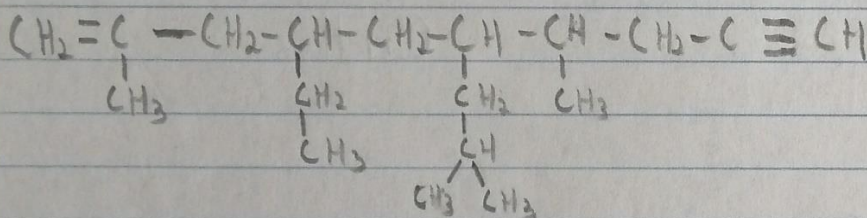 CH₂=C—CH₂-CH-CH₂-CH-CH-CH₂-C≡CH
CH₃ CH₂ CH₂ CH₃
CH₃ CH
CH₃ CH₃